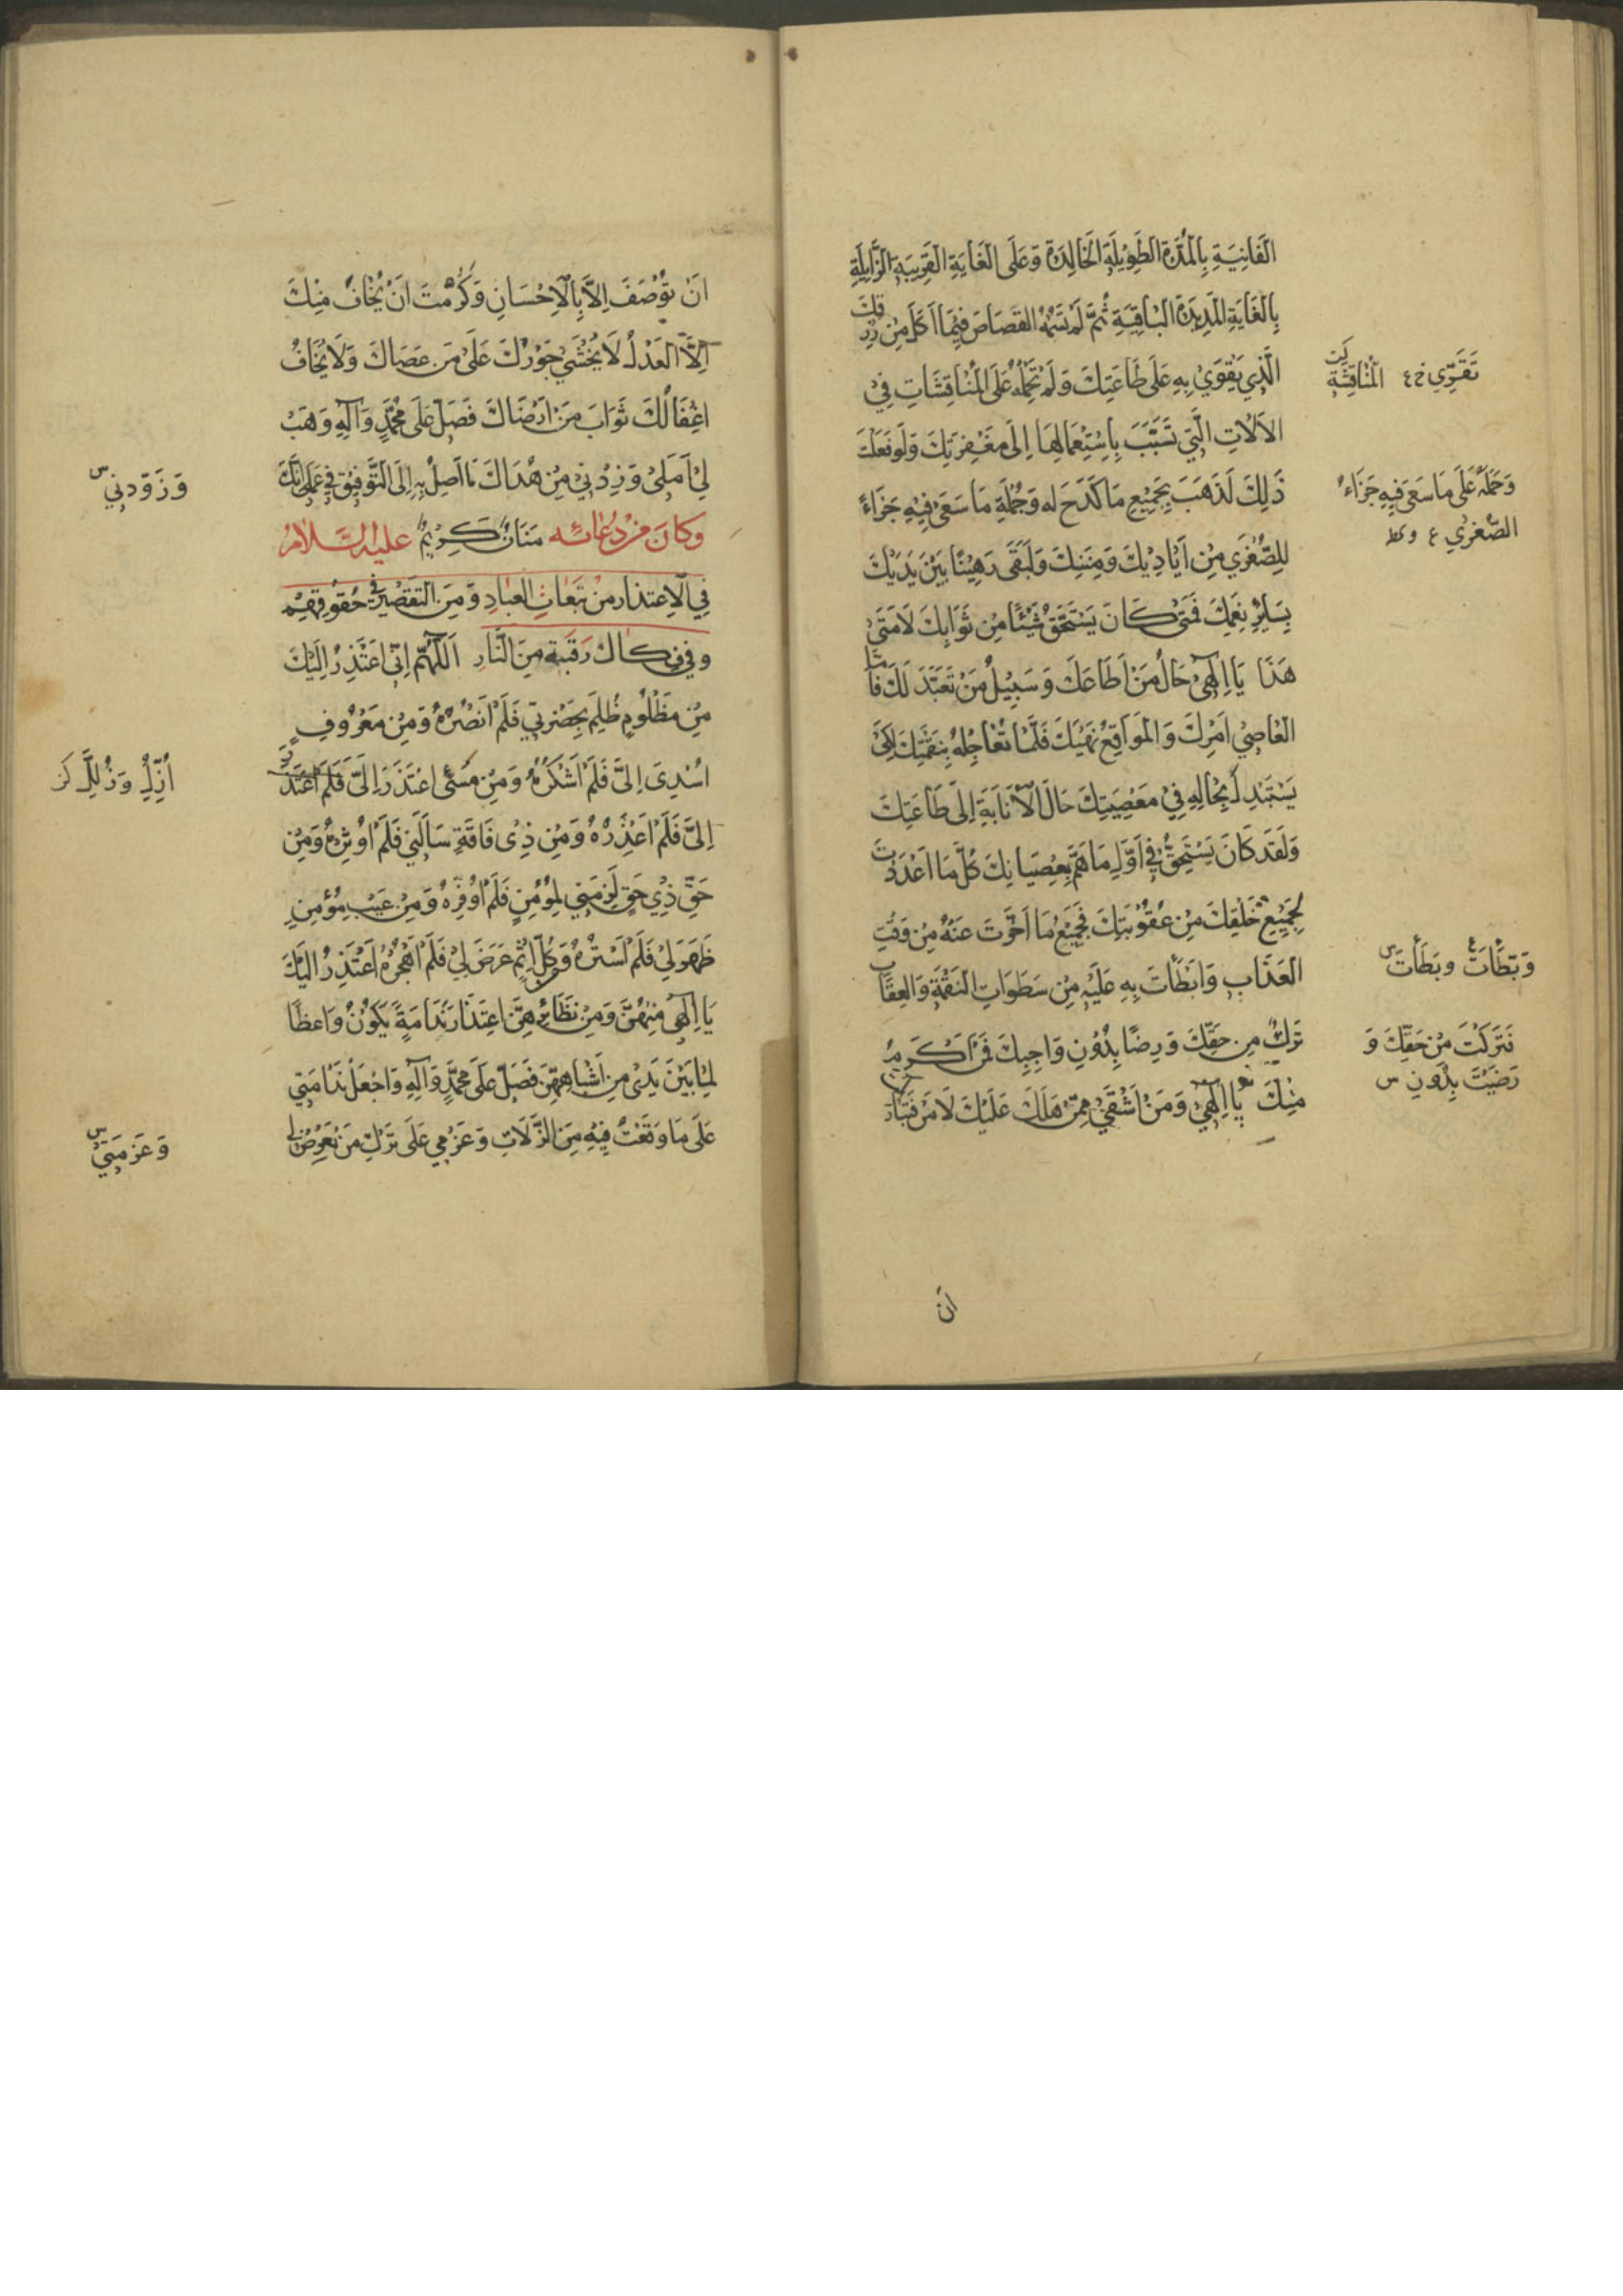 الفَانِيَةِ بِالْمُدَّةِ الطَّوِيْلَةِ الْخَالِدَةِ وَعَلَى الْغَايَةِ الْقَرِيبَةِ الزَّايِلَةِ
بِالْغَايَةِ الْمَدِيدَةِ الْبَاقِيَةِ ثُمَّ لَمْ تَسُمْهُ الْقِصَاصَ فِيْمَا اَكَلَ مِنْ رِزْقِكَ
الَّذِي يَقْوَىْ بِهِ عَلَى طَاعَتِكَ وَلَمْ تَحْمِلْهُ عَلَى الْمُنَاقَشَاتِ فِيْ
الْاَلَاتِ الَّتِي تَسَبَّبَ بِاسْتِعْمَالِهَا اِلَى مَغْفِرَتِكَ وَلَوْ فَعَلْتَ
ذَلِكَ لَذَهَبَ بِجَمِيْعِ مَا كَدَحَ لَه وَجُمْلَةِ مَا سَعَى فِيْهِ جَزَاءً
لِلصُّغْرَى مِنْ اَيَادِيْكَ وَمِنَنِكَ وَلَبَقَى رَهِيْنًا بَيْنَ يَدَيْكَ
بِسَايِرِ نِعَمِكَ فَمَتَى كَانَ يَسْتَحِقُّ شَيْئًا مِنْ ثَوَابِكَ لَا مَتَىْ
هَذَا يَا اِلَهِيْ حَالُ مَنْ اَطَاعَكَ وَسَبِيْلُ مَنْ تَعَبَّدَ لَكَ فَاَمَّا
الْعَاصِيْ اَمْرَكَ وَالْمُوَاقِعُ نَهْيَكَ فَلَمْ تُعَاجِلْهُ بِنَقِمَتِكَ لِكَىْ
يَسْتَبْدِلَ بِحَالِهِ فِيْ مَعْصِيَتِكَ حَالَ الْاَنَابَةِ اِلَى طَاعَتِكَ
وَلَقَدْ كَانَ يَسْتَحِقُّ فِيْ اَوَّلِ مَا هَمَّ بِعِصْيَانِكَ كُلَّ مَا اَعْدَدْتَ
لِجَمِيْعِ خَلْقِكَ مِنْ عُقُوْبَتِكَ فَجَمِيْعُ مَا اَخَّرْتَ عَنْهُ مِنْ وَقْتِ
الْعَذَابِ وَاَبْطَأْتَ بِهِ عَلَيْهِ مِنْ سَطَوَاتِ النَّقْمَةِ وَالْعِقَابِ
تَرْكٌ مِنْ حَقِّكَ وَرِضًا بِدُوْنِ وَاجِبِكَ فَمَنْ اَكْرَمُ
مِنْكَ يَا اِلَهِيْ وَمَنْ اَشْقَىْ مِمَّنْ هَلَكَ عَلَيْكَ لَا مَنْ فَتَبَارَكْتَ
اَن
تَقَوِّي
الْمُنَاقَشَةِ
وَحَمَلَهُ عَلَى مَا سَعَى فِيهِ جَزَاءُ
الصُّغْرَىٰ
وَبَطَّاتَ وبَطَأتَ س
فَتَرَكْتَ مِنْ حَقِّكَ وَ
رَضَيْتَ بِدُونِ س
اَنْ تُوْصَفَ اِلَّا بِالْاِحْسَانِ وَكَرُمْتَ اَنْ يُخَافَ مِنْكَ
اِلَّا الْعَدْلُ لَا يُخْشَى جَوْرُكَ عَلَى مَنْ عَصَاكَ وَلَا يُخَافُ
اِغْفَالُكَ ثَوَابَ مَنْ اَرْضَاكَ فَصَلِّ عَلَى مُحَمَّدٍ وَآلِهِ وَهَبْ
لِيْ اَمَلِىْ وَزِدْنِيْ مِنْ هُدَاكَ مَا اَصِلُ بِهِ اِلَى التَّوْفِيْقِ فِيْ عَمَلِىْ اِنَّكَ
مَنَّانٌ كَرِيْمٌ وكانَ مِنْ دُعَائِه عليه السَّلامُ
فِي الْاِعتذارِ مِنْ تَبَعَاتِ العبادِ وَمِنَ التَّقْصِيْرِ فِيْ حُقُوْقِهِمْ
وفِيْ فِكاكِ رَقَبَتِهِ مِنَ النَّارِ اَللَّهُمَّ اِنِّي اَعْتَذِرُ اِلَيْكَ
مِنْ مَظْلُوْمٍ ظُلِمَ بِحَضْرَتِي فَلَمْ اَنْصُرْهُ وَمِنْ مَعْرُوْفٍ
اُسْدِىَ اِلَىَّ فَلَمْ اَشْكُرْهُ وَمِنْ مُسِئٍ اعْتَذَرَ اِلَىَّ فَلَمْ اَعْتَذِرْ
اِلَىَّ فَلَمْ اَعْذِرْهُ وَمِنْ ذِىْ فَاقَةٍ سَاَلَنِيْ فَلَمْ اُوْثِرْهُ وَمِنْ
حَقِّ ذِيْ حَقٍّ لَزِمَنِي لِمُوْمِنٍ فَلَمْ اُوَفِّرْهُ وَمِنْ عَيْبِ مُؤْمِنٍ
ظَهَرَ لِيْ فَلَمْ اَسْتُرْهُ وَمِنْ كُلِّ اِثْمٍ عَرَضَ لِيْ فَلَمْ اَهْجُرْهُ اَعْتَذِرُ اِلَيْكَ
يَا اِلَهِىْ مِنْهُنَّ وَمِنْ نَظَائِرِهِنَّ اعْتِذَارَ نَدَامَةٍ يَكُوْنُ وَاعِظًا
لِمَا بَيْنَ يَدَىَّ مِنْ اَشْبَاهِهِنَّ فَصَلِّ عَلَى مُحَمَّدٍ وَآلِهِ وَاجْعَلْ نَدَامَتِي
عَلَى مَا وَقَعْتُ فِيْهِ مِنَ الزَّلَّاتِ وَعَزْمِي عَلَى تَرْكِ مَا يَعْرِضُ لِي
وَزَوِّدنِي س
وَعَزِمَتِيْ س